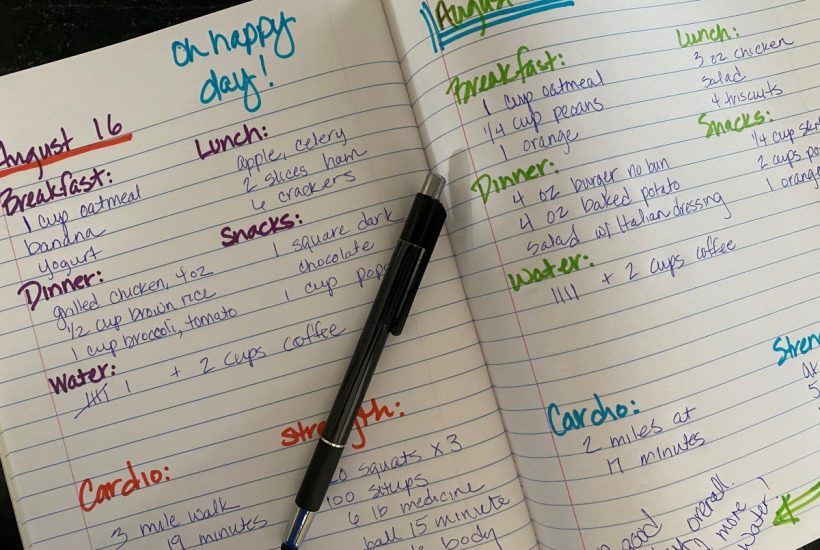 oh happy
day!
August 16
Breakfast:
1 cup oatmeal
banana
yogurt
Lunch:
apple, celery
2 slices ham
6 crackers
Snacks:
1 square dark
chocolate
1 cup
Dinner:
grilled chicken, 4oz
1/2 cup brown rice
1 cup broccoli, tomato
Water:
1 + 2 cups coffee
Cardio:
3 mile walk
19 minutes
strength:
squats x 3
100 situps
6 lb medicine
ball 15 minute
body
August
Breakfast:
1 cup oatmeal
1/4 cup pecans
1 orange
Lunch:
3 oz chicken
salad
4 triscuits
Snacks:
1/4 cup
2 cups
1 orange
Dinner:
4 oz burger no bun
4 oz baked potato
Salad w/ Italian dressing
Water:
IIII + 2 cups coffee
Cardio:
2 miles at
17 minutes
good
overall.
more
water!